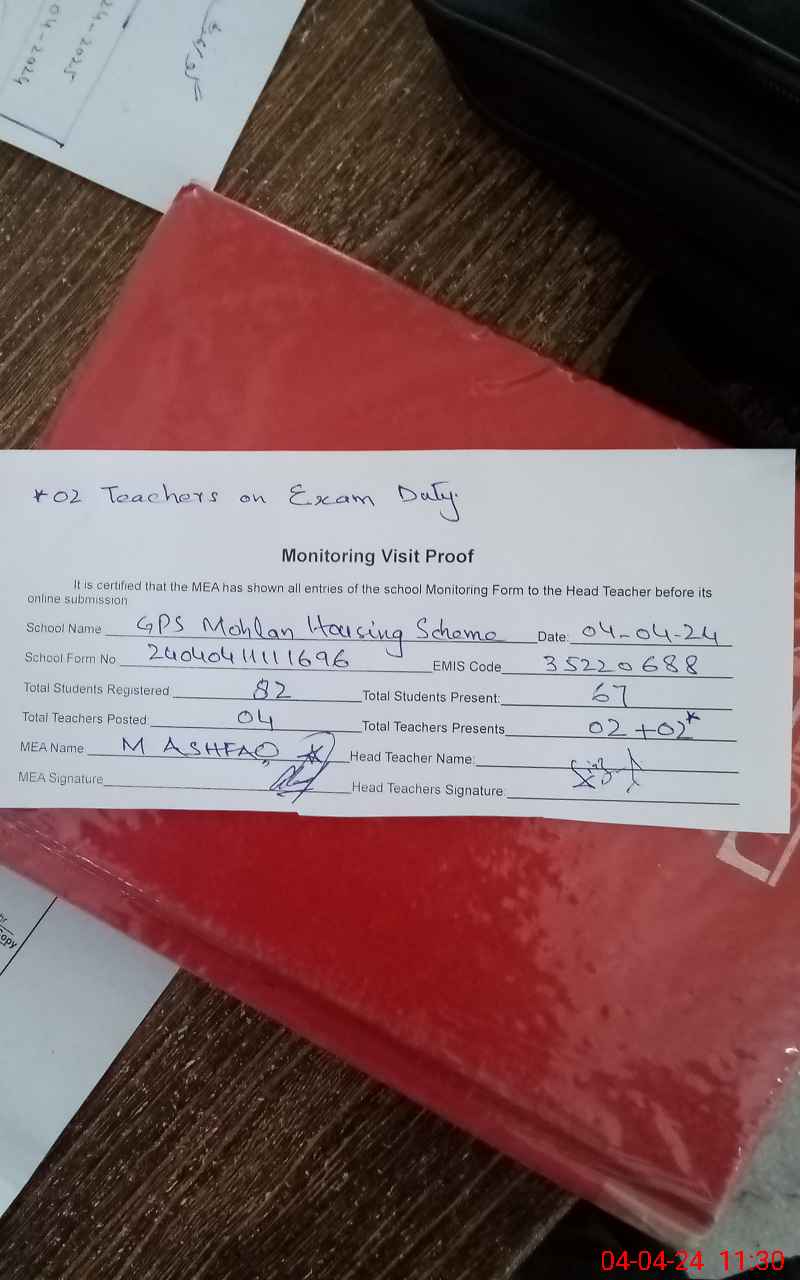 24-2025
04-2024
*02 Teachers on Exam Duty.
Monitoring Visit Proof
It is certified that the MEA has shown all entries of the school Monitoring Form to the Head Teacher before its
online submission
School Name GPS Mohlan Housing Scheme Date: 04-04-24
School Form No. 2404041111696 EMIS Code 35220688
Total Students Registered 82 Total Students Present: 67
Total Teachers Posted: 04 Total Teachers Presents 02+02*
MEA Name M ASHFAQ Head Teacher Name:
MEA Signature Head Teachers Signature:
opy
04-04-24 11:30